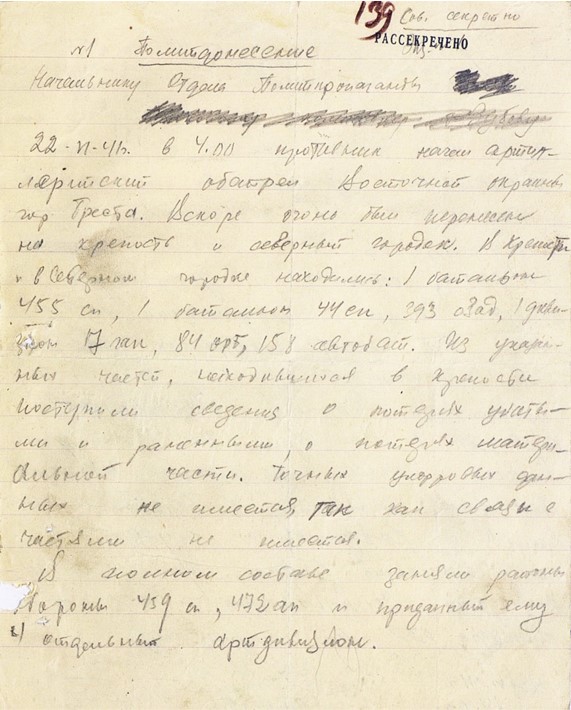 139 Сов. секретно
РАССЕКРЕЧЕНО
№1 Политдонесение
Начальнику Отдела Политпропаганды
22-VI-41г. в 4.00 противник начал артил-
лерийский обстрел Восточной окраины
гор Бреста. Вскоре огонь был перенесен
на крепость и северный городок. В крепости
и в северном городке находились: 1 батальон
455 сп, 1 батальон 44 сп, 393 озад, 1 диви-
зион 17 гап, 84 срп, 158 автобат. Из указан-
ных частей, находившихся в крепости
поступили сведения о потерях убиты-
ми и ранеными, о потерях матери-
альной части. Точных цифровых дан-
ных не имеется, так как связи с
частями не имеется.
В полном составе заняли районы
обороны 459 сп, 472 ап и приданный ему
отдельный артдивизион.